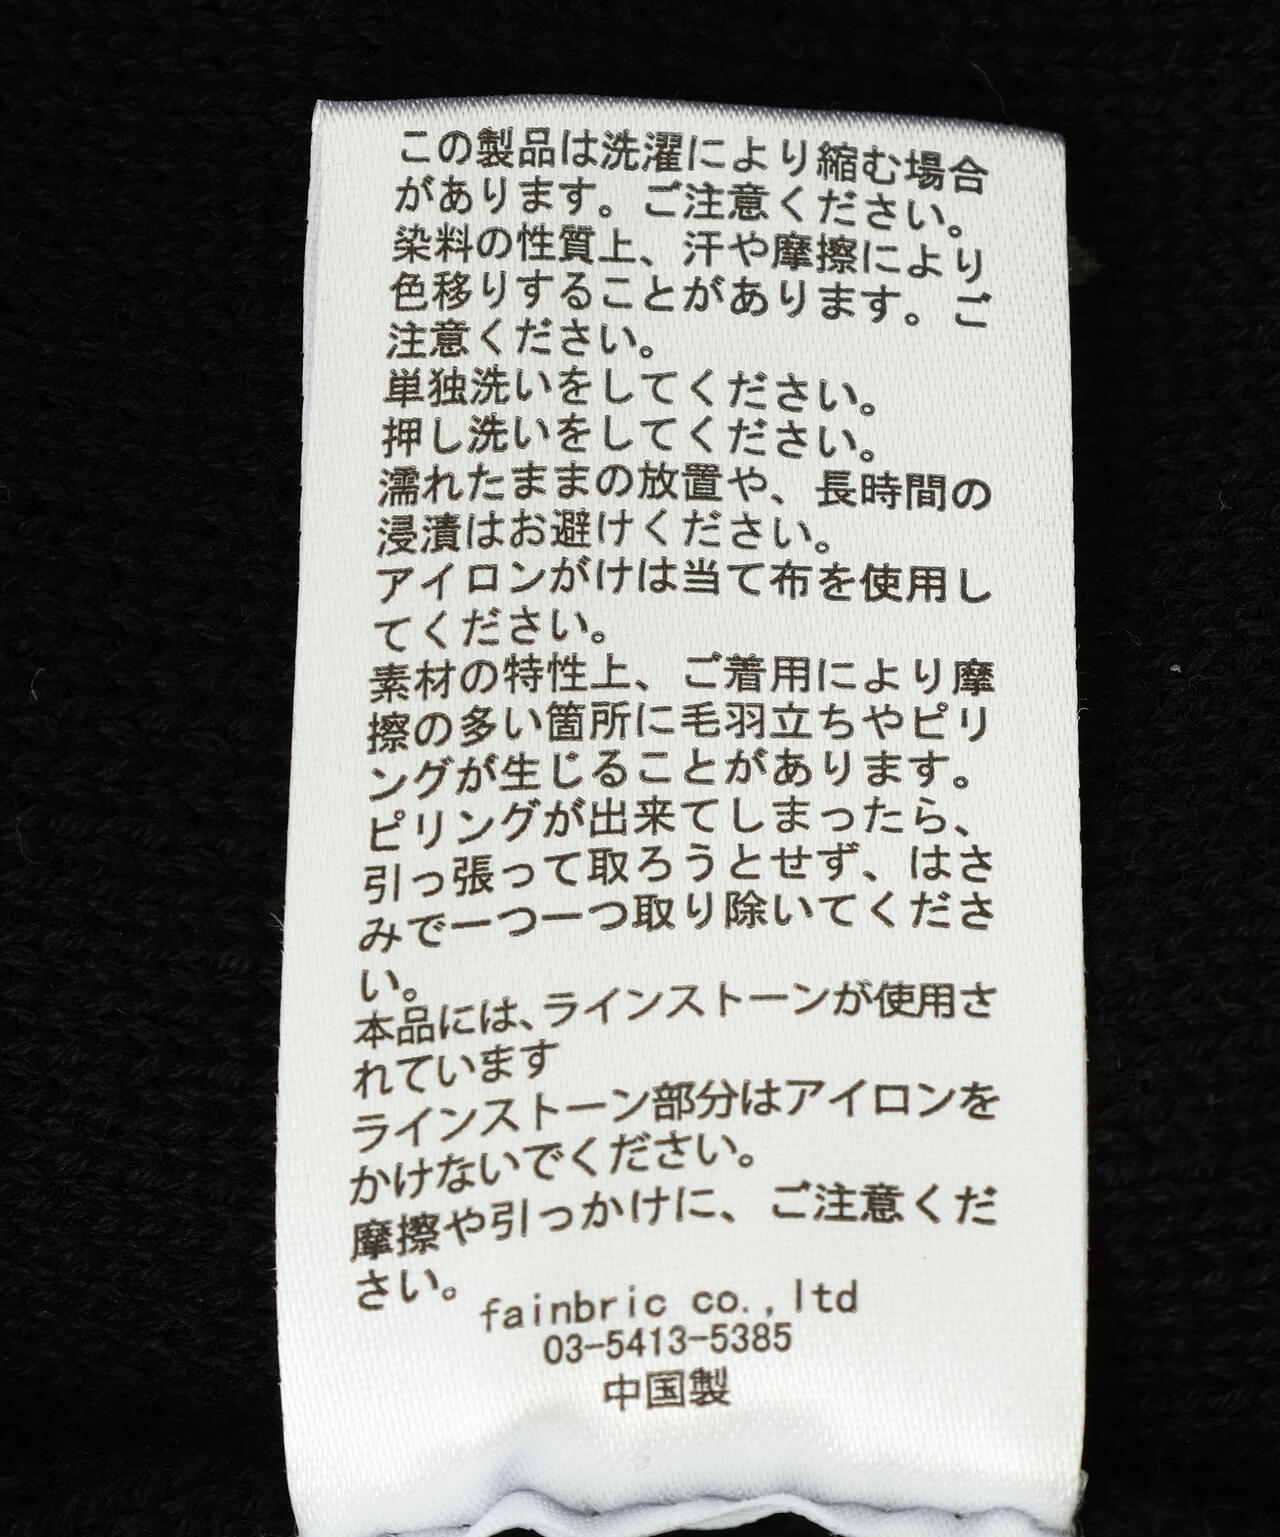 この製品は洗濯により縮む場合
があります。ご注意ください。
染料の性質上、汗や摩擦により
色移りすることがあります。ご
注意ください。
単独洗いをしてください。
押し洗いをしてください。
濡れたままの放置や、長時間の
浸漬はお避けください。
アイロンがけは当て布を使用し
てください。
素材の特性上、ご着用により摩
擦の多い箇所に毛羽立ちやピリ
ングが生じることがあります。
ピリングが出来てしまったら、
引っ張って取ろうとせず、はさ
みで一つ一つ取り除いてくださ
い。
本品には、ラインストーンが使用さ
れています
ラインストーン部分はアイロンを
かけないでください。
摩擦や引っかけに、ご注意くだ
さい。
fainbric co.,ltd
03-5413-5385
中国製